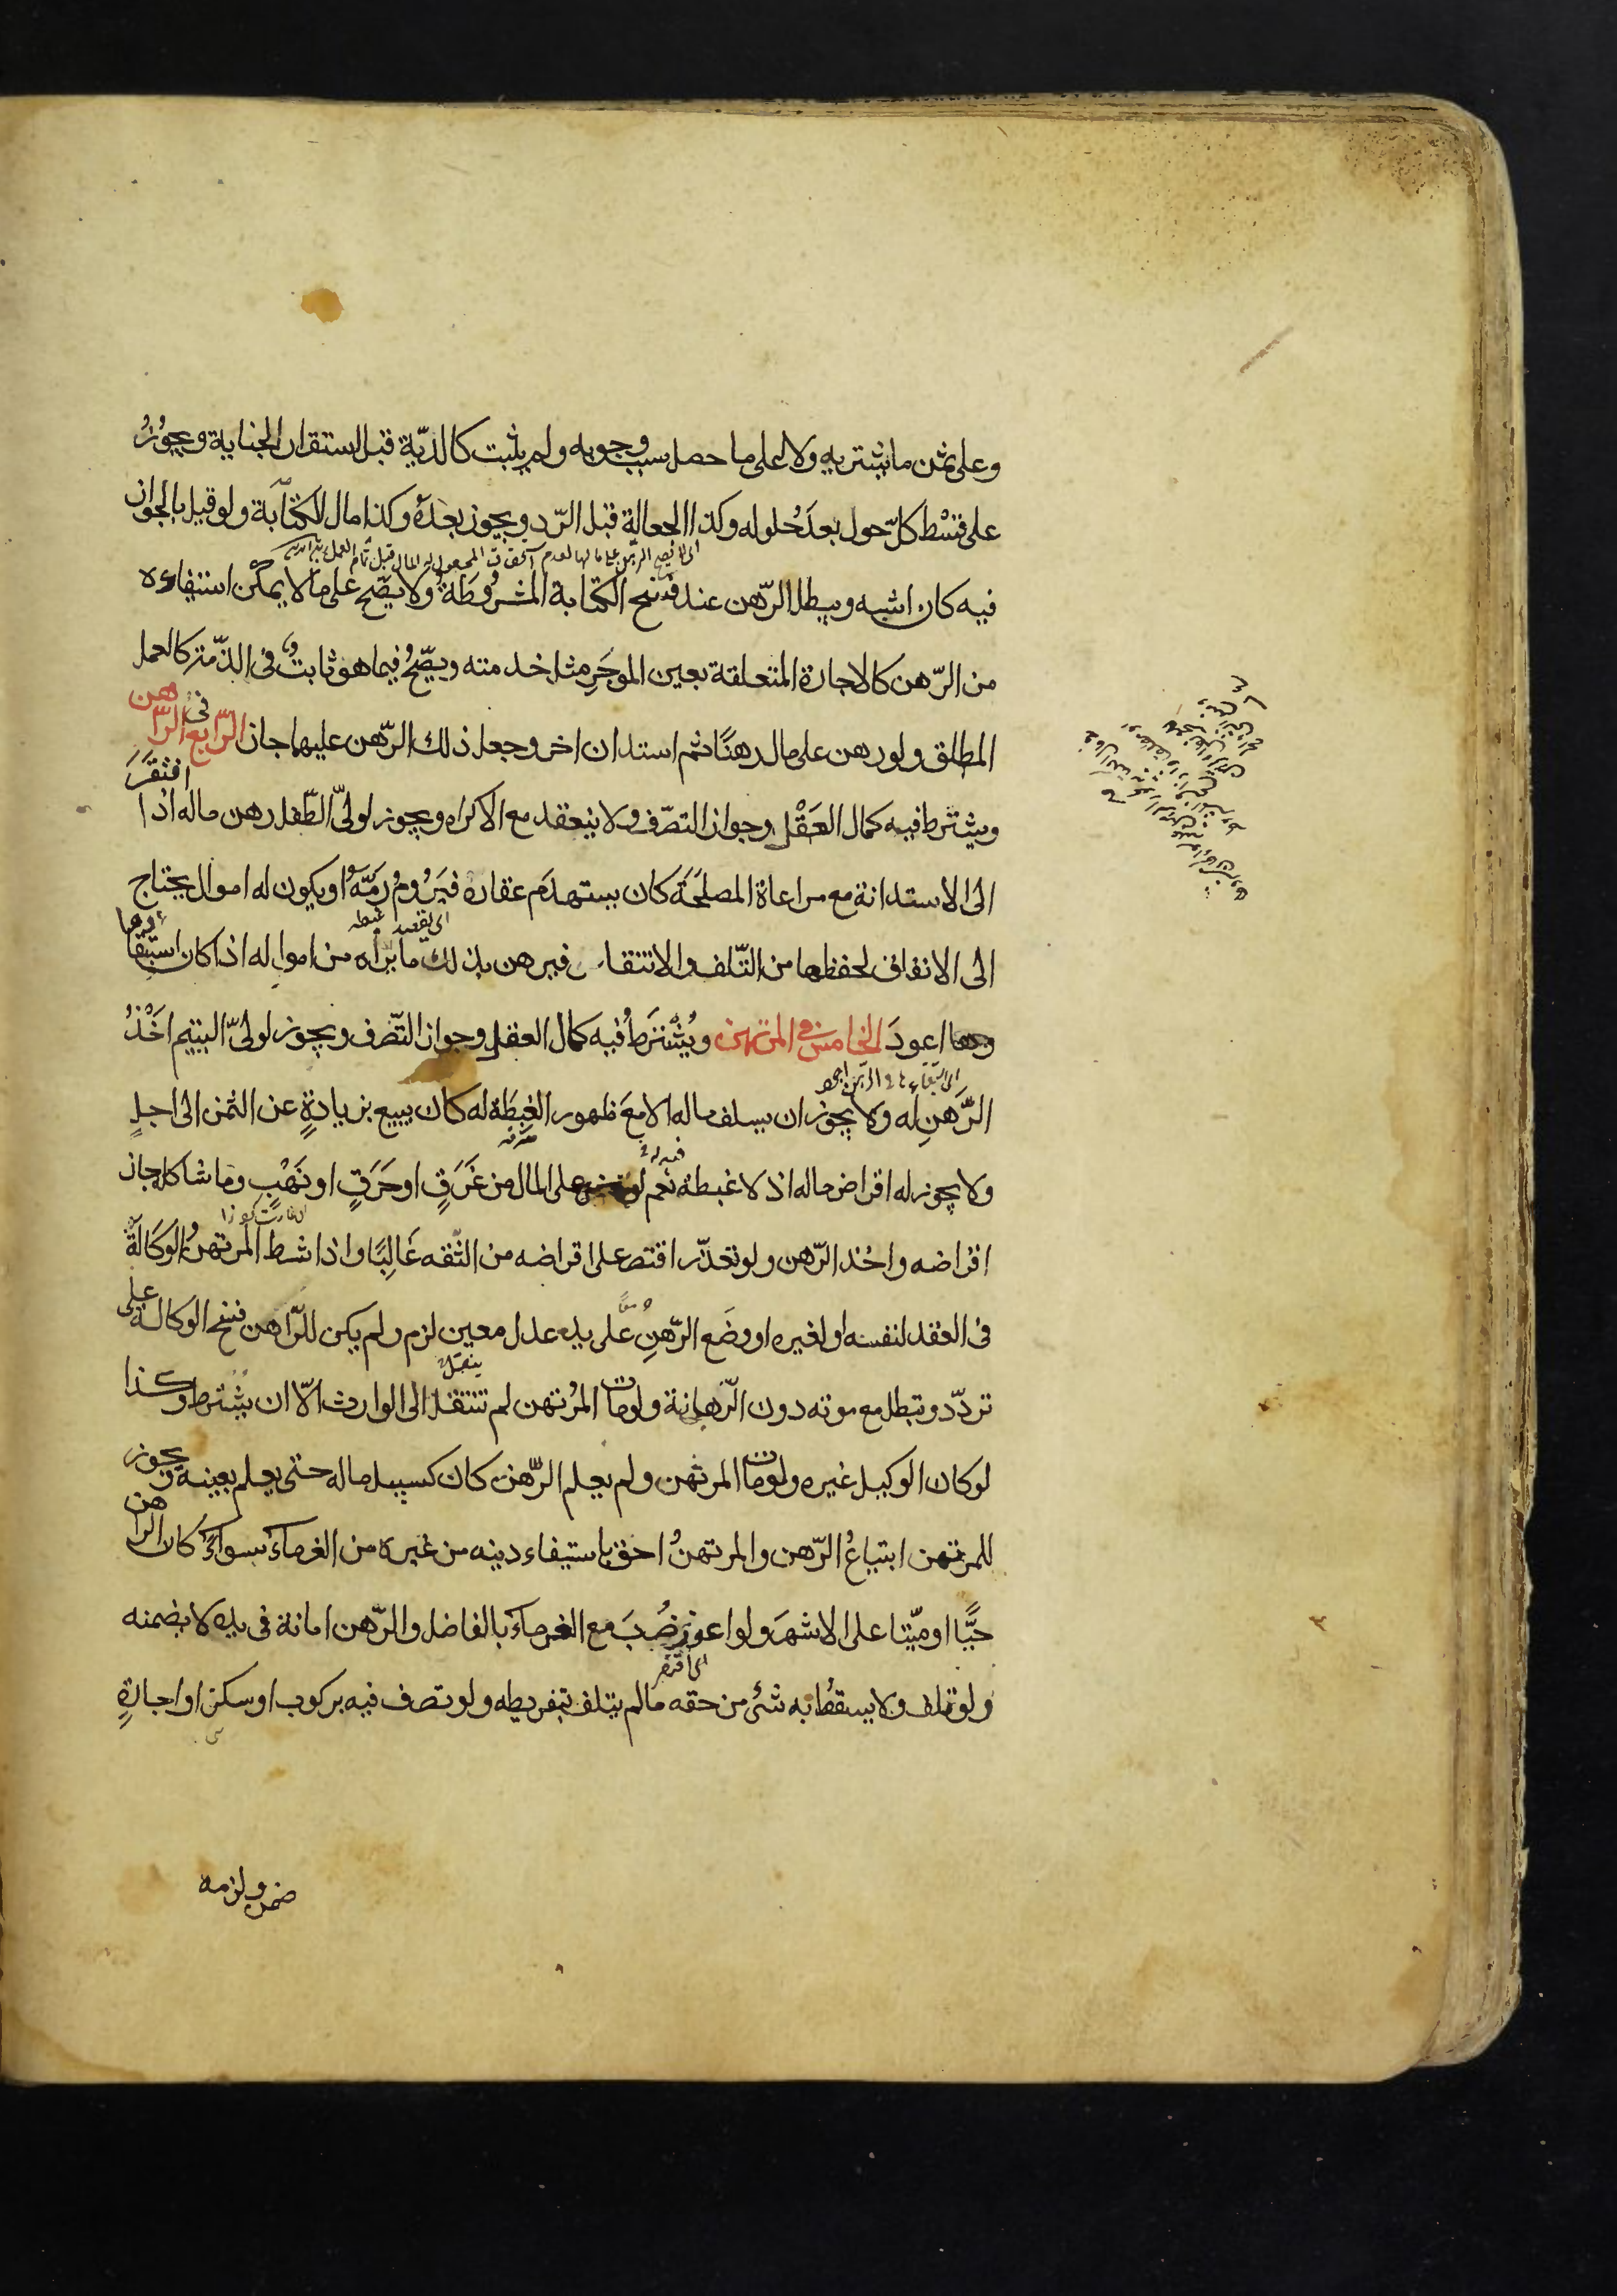 وعلى ثمن ما يشتريه ولا على ما حصل سبب وجوبه ولم يثبت كالدّية قبل استقرار الجناية ويجوزُ
على قسْط كلّ حول بعدَ حُلوله وكذا الجعالة قبل الرّد ويجوز بعدَهُ وكذا مال الكتابة ولو قيل بالجواز
فيه كان اشبه ويبطل الرّهن عند فسخ الكتابة المشروُطَة ولا يصّح على ما لا يمكن استيفاءه
من الرّهن كالاجارة المتعلقة بعين الموجَرِ مثل خدمته ويصّحُ فيما هو ثابتٌ فى الذّمة كالعمل
المطلق ولو رهن على مال رهنًا ثم استدان اخر وجعل ذلك الرّهن عليهما جاز الرّابع فى الرّاهن
ويشترط فيه كمال العَقْل وجواز التصرّف ولا ينعقد مع الاكراه ويجوز لولىّ الطّفل رهن ماله اذا افتقَرَ
الى الاستدانة مع مراعاة المصلحَة كان يستهدَم عقاره فيَرُومُ رَمَّهُ او يكون له اموال يحتاج
الى الانفاق لحفظها من التّلف والانتقاص فيرهن بذلك ما يراه من امواله اذا كان استبقاءها
اعودَ الخامس فى المرتهن ويُشْترَطُ فيه كمال العقل وجواز التّصرف ويجوز لولىّ اليتيم اَخْذُ
الرَّهنِ له ولا يجوز ان يسلف ماله الا معَ ظهور الغِبطَة له كان يبيع بزيادةٍ عن الثمن الى اجلٍ
ولا يجوز له اقراض ماله اذ لا غبطة نعم لو على المال من غَرَقٍ او حَرَقٍ او نَهْبٍ وما شاكله جاز
اقراضه واخذ الرّهن ولو تعذّر اقتصر على اقراضه من الثّقه غَالِبًا واذا شرط المرتهنُ الوكَالَةَ
فى العقد لنفسه او لغيره او وضَع الرّهنِ على يد عدل معين لزم ولم يكن للرّاهن فسخ الوكالة على
تردّد وتبطل مع موته دون الرّهانة ولو مات المرُتهن لم تنتقل الى الوارث الاّ ان يشترط وكذا
لو كان الوكيل غيره ولو مات المرتهن ولم يعلم الرّهن كان كسبيل ماله حتى يعلم بعينه ويجوز
للمرتهن ابتياعُ الرّهن والمرتهنُ احق باستيفاء دينه من غيره من الغرماءِ سواءٌ كان الراهن
حيًّا او ميّتا على الاشهَر ولو اعوز ضُرِبَ مع الغرماءِ بالفاضل والرّهن امانة فى يده لا يضمنه
ولو تلف ولا يسقطُ به شئ من حقه ما لم يتلف بتفريطه ولو تصرف فيه بركوب او سكن او اجارةٍ
ضمن ولزمه